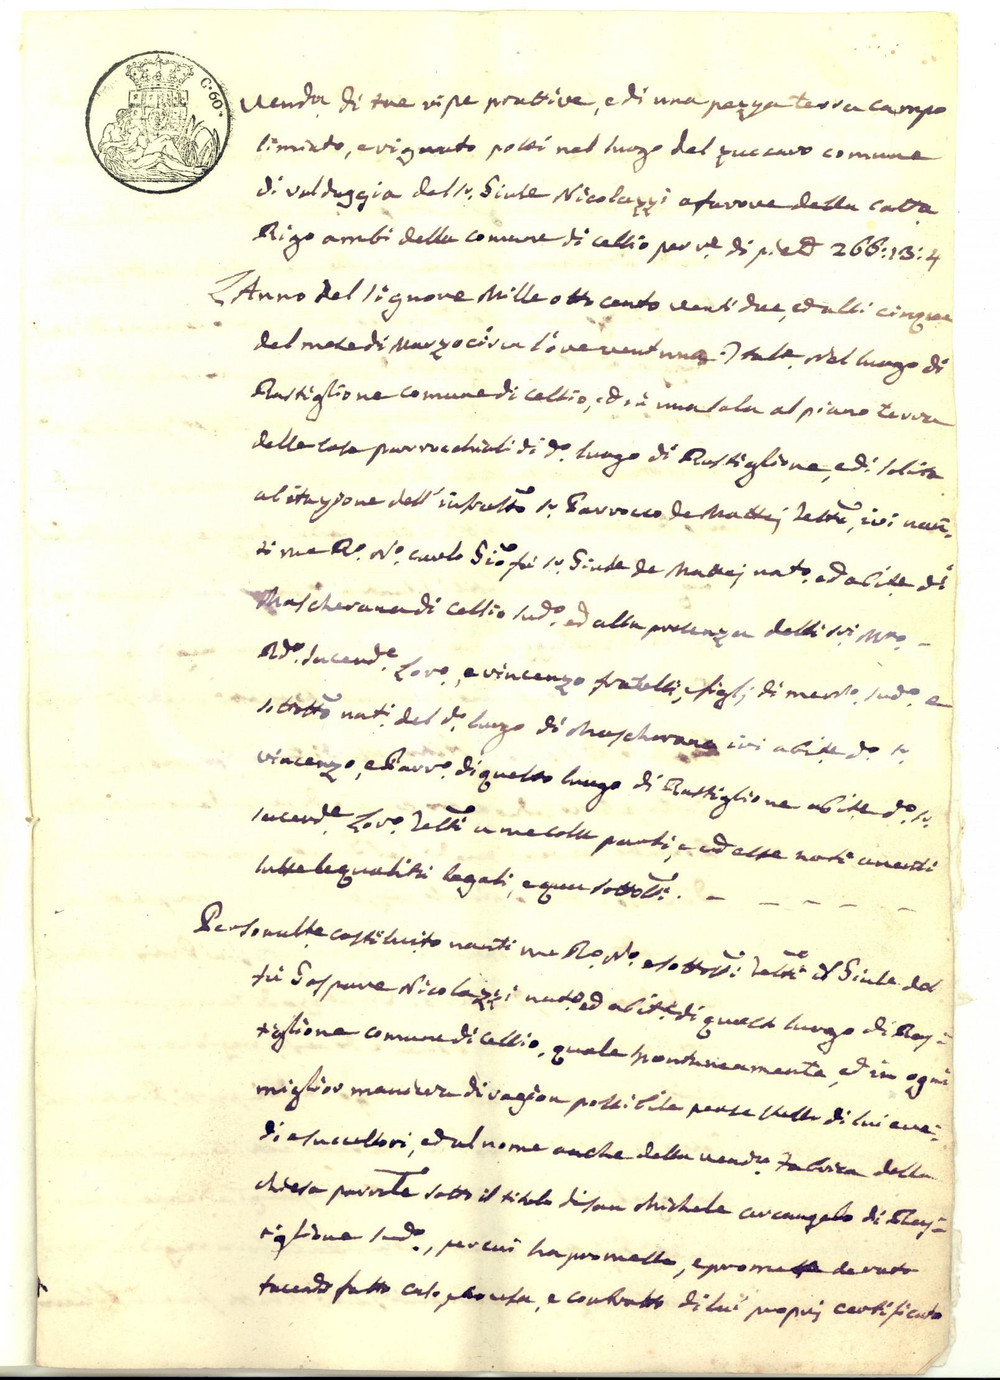 C. 60.
Vendita di due ripe prattive, e di una pezza terra campo
liminto, e vignato posti nel luogo del Zuccaro comune
di valduggia del Sr. Giuse Nicolazzi a favore della Catta
Rigo ambi della comune di Cellio per re di pte 266:13:4
L'Anno del Signore Mille otto cento venti due, ed alli cinque
del mese di Marzo circa l'ore ventuna Itale. Nel luogo di
Rastiglione comune di Cellio, ed in una sala al piano terra
delle case parrocchiali di do. luogo di Rastiglione, e di solita
abitazione dell' infratto Sr. Parroco de Mattej Testi, ivi nan-
ti me Ro. No. Carlo Gio fu Sr. Giuse de Mattej nato. ed abite. di
Mascherana di Cellio sudo. ed alla presenza delli Sri Mto.
Rdo. Sacerde. Loro., e vincenzo fratelli, e figlj di me No. sudo. e
sottotto nati. del do. luogo di Mascherana ivi abite. do. Sr.
vincenzo, e Parro. di questo luogo di Rastiglione abite. do. Sr.
sacerde. Loro. Testi a me colle parti, e ad esse noti aventi
tutte le qualità legali, e qua sottotti. — — — — —
Personalte. costituito nanti me Ro. No. e sottotti Testi il Giuse del
fu Gaspare Nicolazzi nato. ed abite. di questo luogo di Ras-
tiglione comune di Cellio, quale spontaneamente, ed in ogni
miglior maniera di ragion possibile per se stesso di lui ere-
di e successori, ed al nome anche della venda. Fabrica della
chiesa parrle sotto il titolo di san Michele arcangelo di Ras-
tiglione sudo., per cui ha promesso, e promette de rato
facendo fatto caso, e contratto di lui proprj certificato